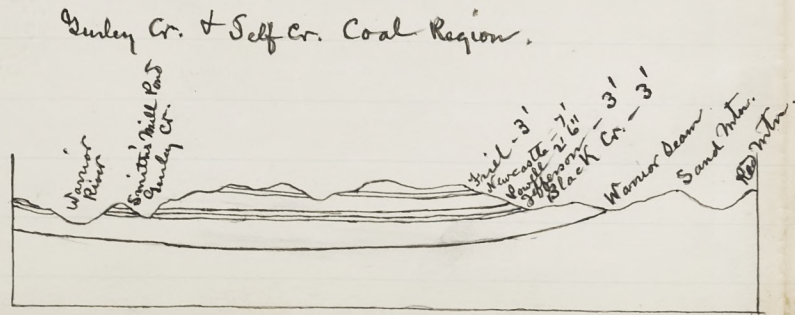 Gurley Cr. & Self Cr. Coal Region.
Warrior
River
Smith's Mill Pond
Gurley Cr.
Friel - 3'
Newcastle - 7'
Powell 2' 6"
Jefferson - 3'
Black Cr. - 3'
Warrior Seam
Sand Mtn.
Red Mtn.